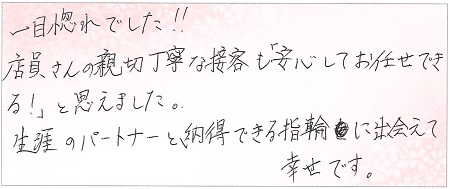 一目惚れでした!!
店員さんの親切丁寧な接客も「安心してお任せでき
る!」と思えました。
生涯のパートナーと、納得できる指輪に出会えて
幸せです。